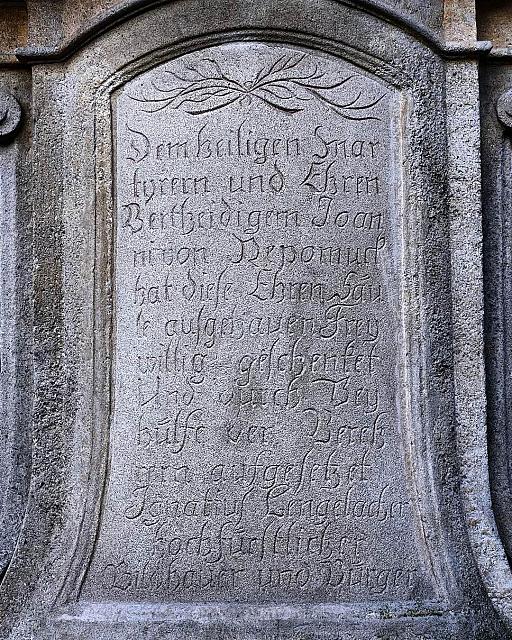 Dem heiligen Mar
tyrern und Ehren
Vertheidigern Joan
ni von Nepomuck
hat diese Ehren Säu
le aufgehauen Frey
willig geschenket
Und durch Bey
hülfe der Vereh
rern aufgesetzet
Ignatius Lengelacher
hochfürstlicher
Bildhauer und Burger